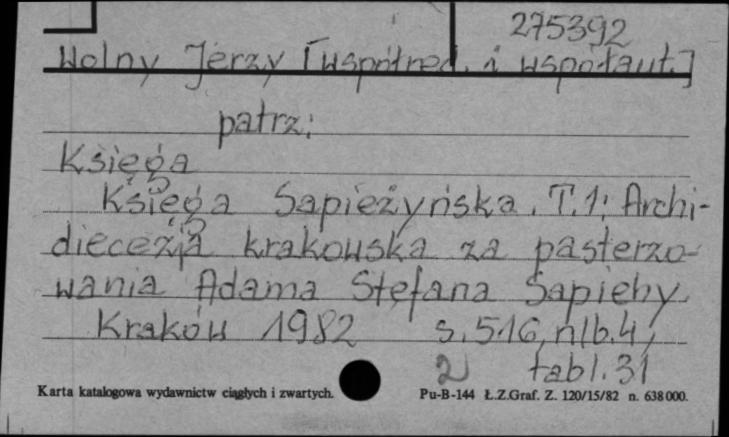 275392
Wolny Jerzy [współred. i współaut.]
patrz:
Księga
Księga Sapieżyńska. T.1: Archi-
diecezja krakowska za pasterzo-
wania Adama Stefana Sapiehy
Kraków 1982 s. 516, nlb. 4,
2 tabl. 31
Karta katalogowa wydawnictw ciągłych i zwartych. Pu-B-144 Ł.Z.Graf. Z. 120/15/82 n. 638 000.